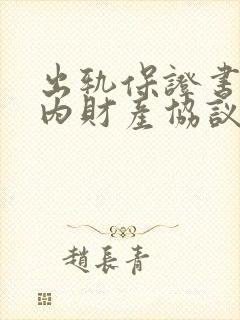 出轨保證書
内財產協議
趙長青